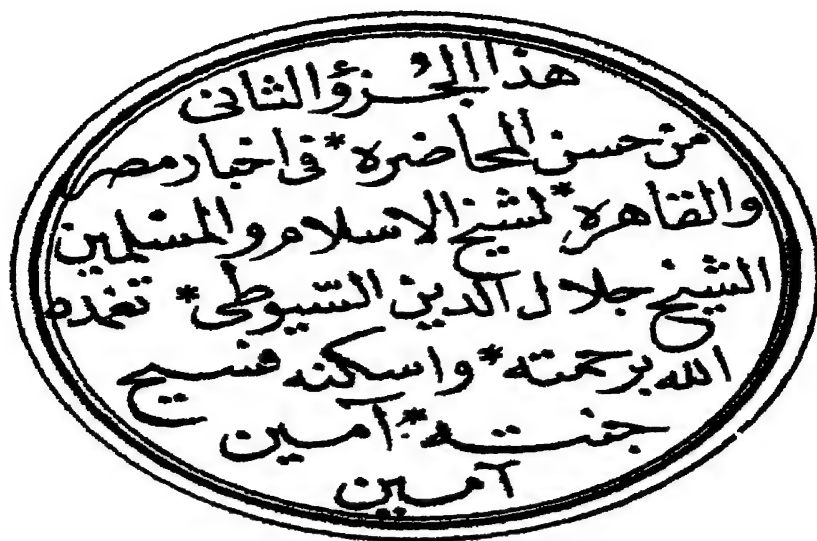 هذا الجزؤ الثانى
من حسن المحاضره * فى اخبار مصر
والقاهره * لشيخ الاسلام والمسلمين
الشيخ جلال الدين السيوطى * تغمده
الله برحمته * واسكنه فسيح
جنته * آمين
آمين